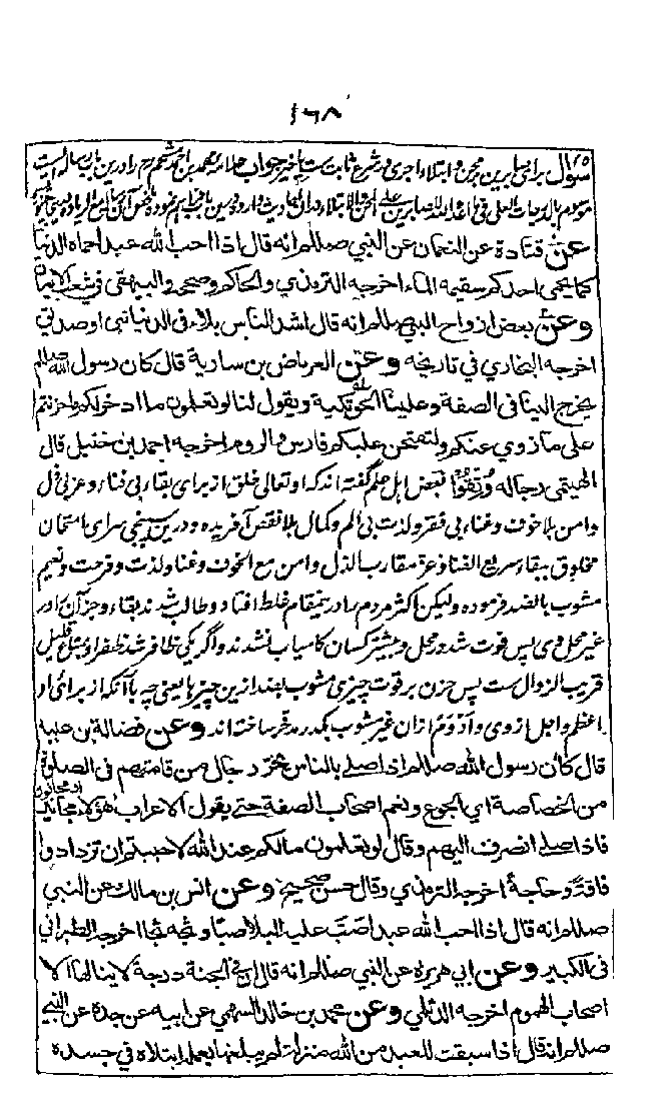 ١٦٨
سوال برای صابرین محن و ابتلاء اجری در شرع ثابت ست یا خیر جواب علامه محمد بن احمد را درین باب رساله ایست
موسوم
عن قتادة عن النعمان عن النبي صللم انه قال اذا احب الله عبدا حماه الدنيا
كما يحمى احدكم سقيمه الماء اخرجه الترمذي والحاكم وصححه والبيهقي في شعب الايمان
وعن بعض ازواج النبي صللم انه قال اشد الناس بلاء في الدنيا نبي او صديق
اخرجه البخاري في تاريخه وعن العرباض بن سارية قال كان رسول الله صللم
يخرج الينا في الصفة وعلينا الحوتكية ويقول لنا لو تعلمون ما ادخر لكم ما حزنتم
على ما زوي عنكم ولتفتحن عليكم فارس والروم اخرجه احمد بن حنبل قال
الهيثمي رجاله وثقوا بعض اهل علم گفته اند که او تعالی خلق از برای بقاء بی فناء و عز بی ذل
و امن بلا خوف و غناء بی فقر و لذت بی الم و کمال بلا نقص آفریده و درین سپنجی سرای امتحان
مخلوق ببقاء سریع الفناء و عز مقارب الذل و امن مع الخوف و غنا و لذت و فرحت و نعیم
مشوب بالضد فرموده ولیکن اکثر مردم را درینمقام غلط افتاد و طالب شدند بقاء و جز آن را در
غیر محل وی پس فوت شد در محل و بیشتر کسان کامیاب نشدند و اگر یکی ظافر شد ظفر او بمتاع قلیل
قریب الزوال ست پس حزن بر فوت چیزی مشوب بضد ازین چیزها یعنی چه با آنکه از برای او
اعظم و اجل از وی و ادوم ازان غیر مشوب بکدر مدخر ساخته اند وعن فضالة بن عبيد
قال كان رسول الله صللم اذا صلى بالناس خر رجال من قامتهم في الصلوة
من الخصاصة اي الجوع وهم اصحاب الصفة حتى يقول الاعراب هؤلاء مجانين او مجانون
فاذا صلى انصرف اليهم وقال لو تعلمون ما لكم عند الله لاحببتم ان تزدادوا
فاقة وحاجة اخرجه الترمذي وقال حسن صحيح وعن انس بن مالك عن النبي
صللم انه قال اذا احب الله عبدا صب عليه البلاء صبا وثجه ثجا اخرجه الطبراني
في الكبير وعن ابي هريرة عن النبي صللم انه قال ان في الجنة درجة لا ينالها الا
اصحاب الهموم اخرجه الديلمي وعن محمد بن خالد السلمي عن ابيه عن جده عن النبي
صللم انه قال اذا سبقت للعبد من الله منزلة لم يبلغها بعمل ابتلاه في جسده